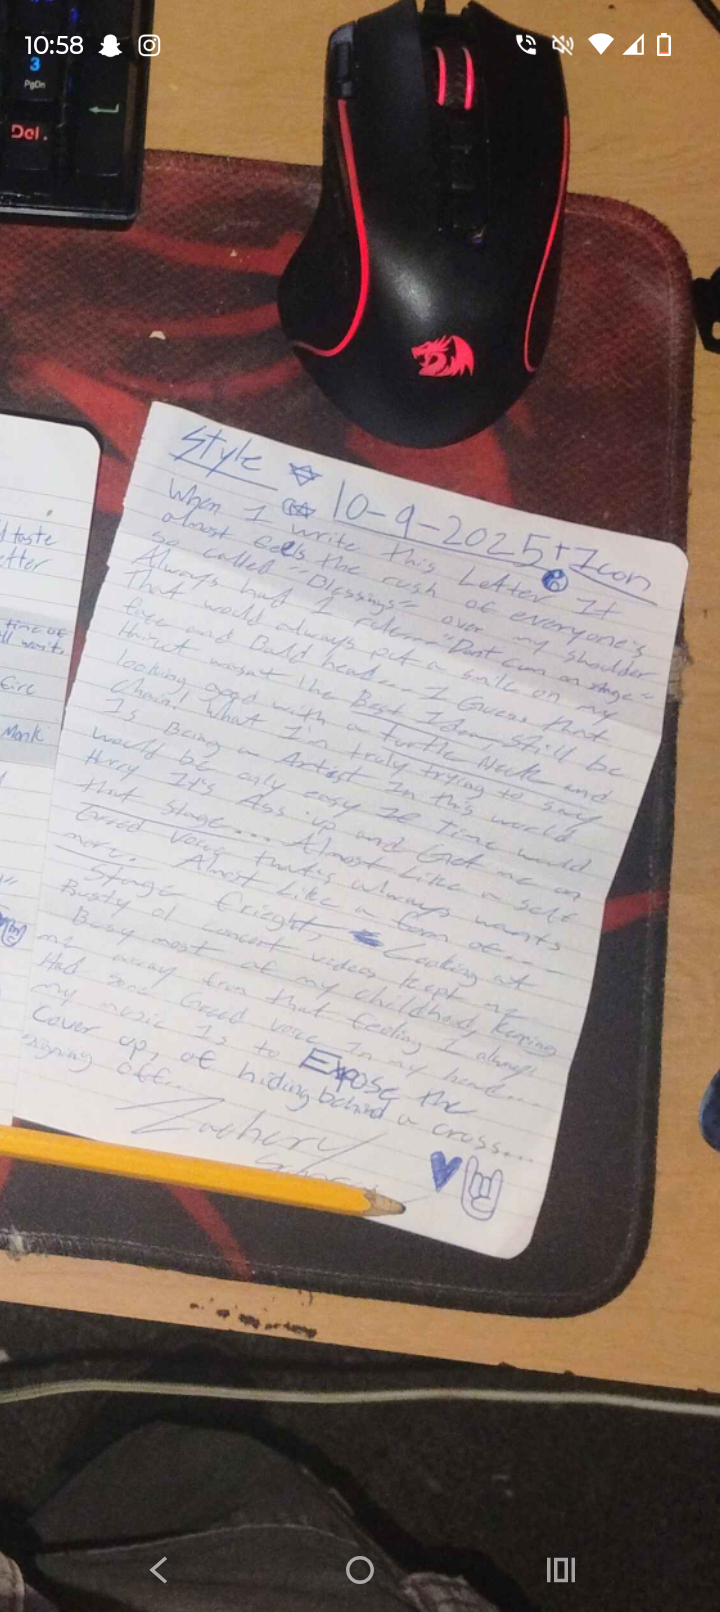 10:58
3
PgDn
Del.
Style
10-9-2025 + Icon
When I write this Letter It
almost feels the rush of everyone's
so called "Blessings" over my shoulder
Always had 1 rule---- "Dont cum on stage"
That would always put a smile on my
face and Bald head--- I Guess that
Haircut wasnt the Best Idea, Still be
looking good with a turtle Neck and
Chain! What I'm truly trying to say
Is Being an Artist In this world
would be only easy If time would
Hurry It's Ass up and Get me on
that stage... Almost Like a self
Greed voice that's always wants
more. Almost Like a form of----
Stage frieght, Looking at
Busty ol concert videos kept me
Busy most of my childhood, keeping
me away from that feeling I always
Had some Greed voice In my head...
my music Is to Expose the
cover up, of hiding behind a cross...
signing off..
Zachery
d taste
etter
time of
fire
Monk